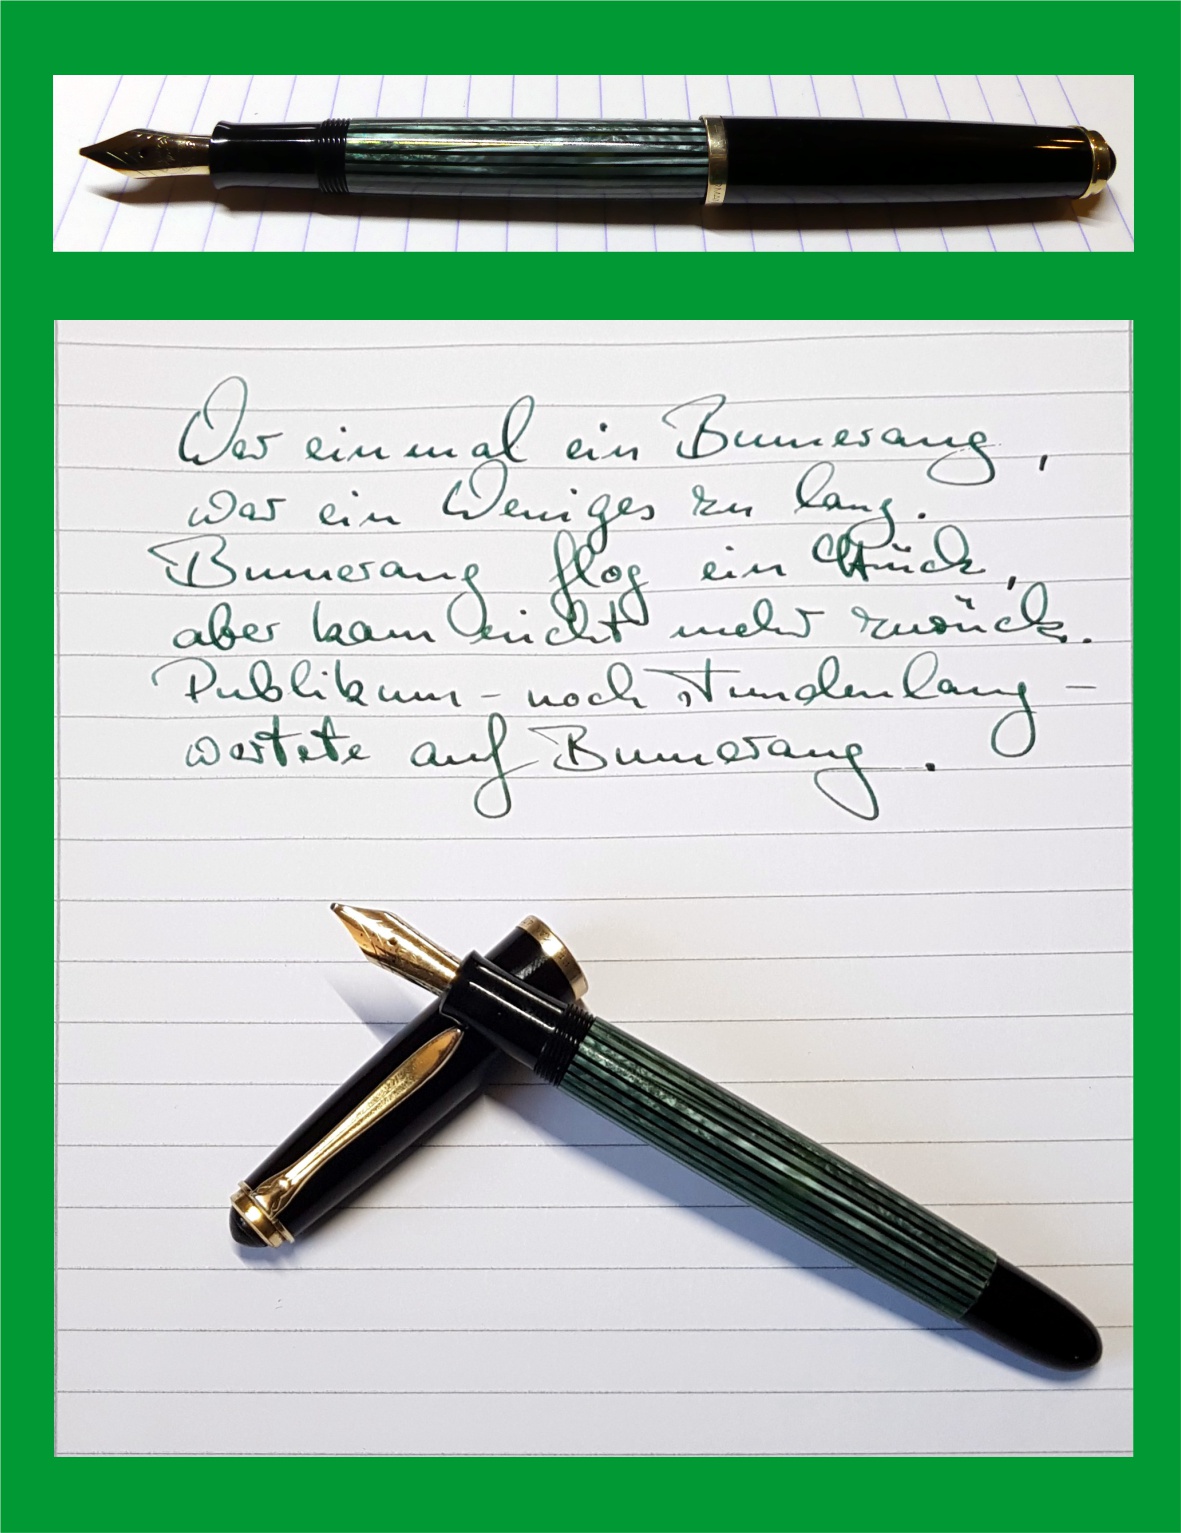 War einmal ein Bumerang,
war ein Weniges zu lang.
Bumerang flog ein Stück,
aber kam nicht mehr zurück.
Publikum – noch stundenlang –
wartete auf Bumerang.